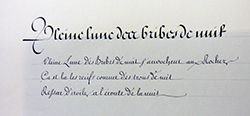 Pleine lune des bribes de nuit
Pleine Lune des Bribes de nuit s'accrochent au Rocher
Ça et là les récifs comme des trous de nuit
Reflet d'étoiles à l'écoute de la nuit